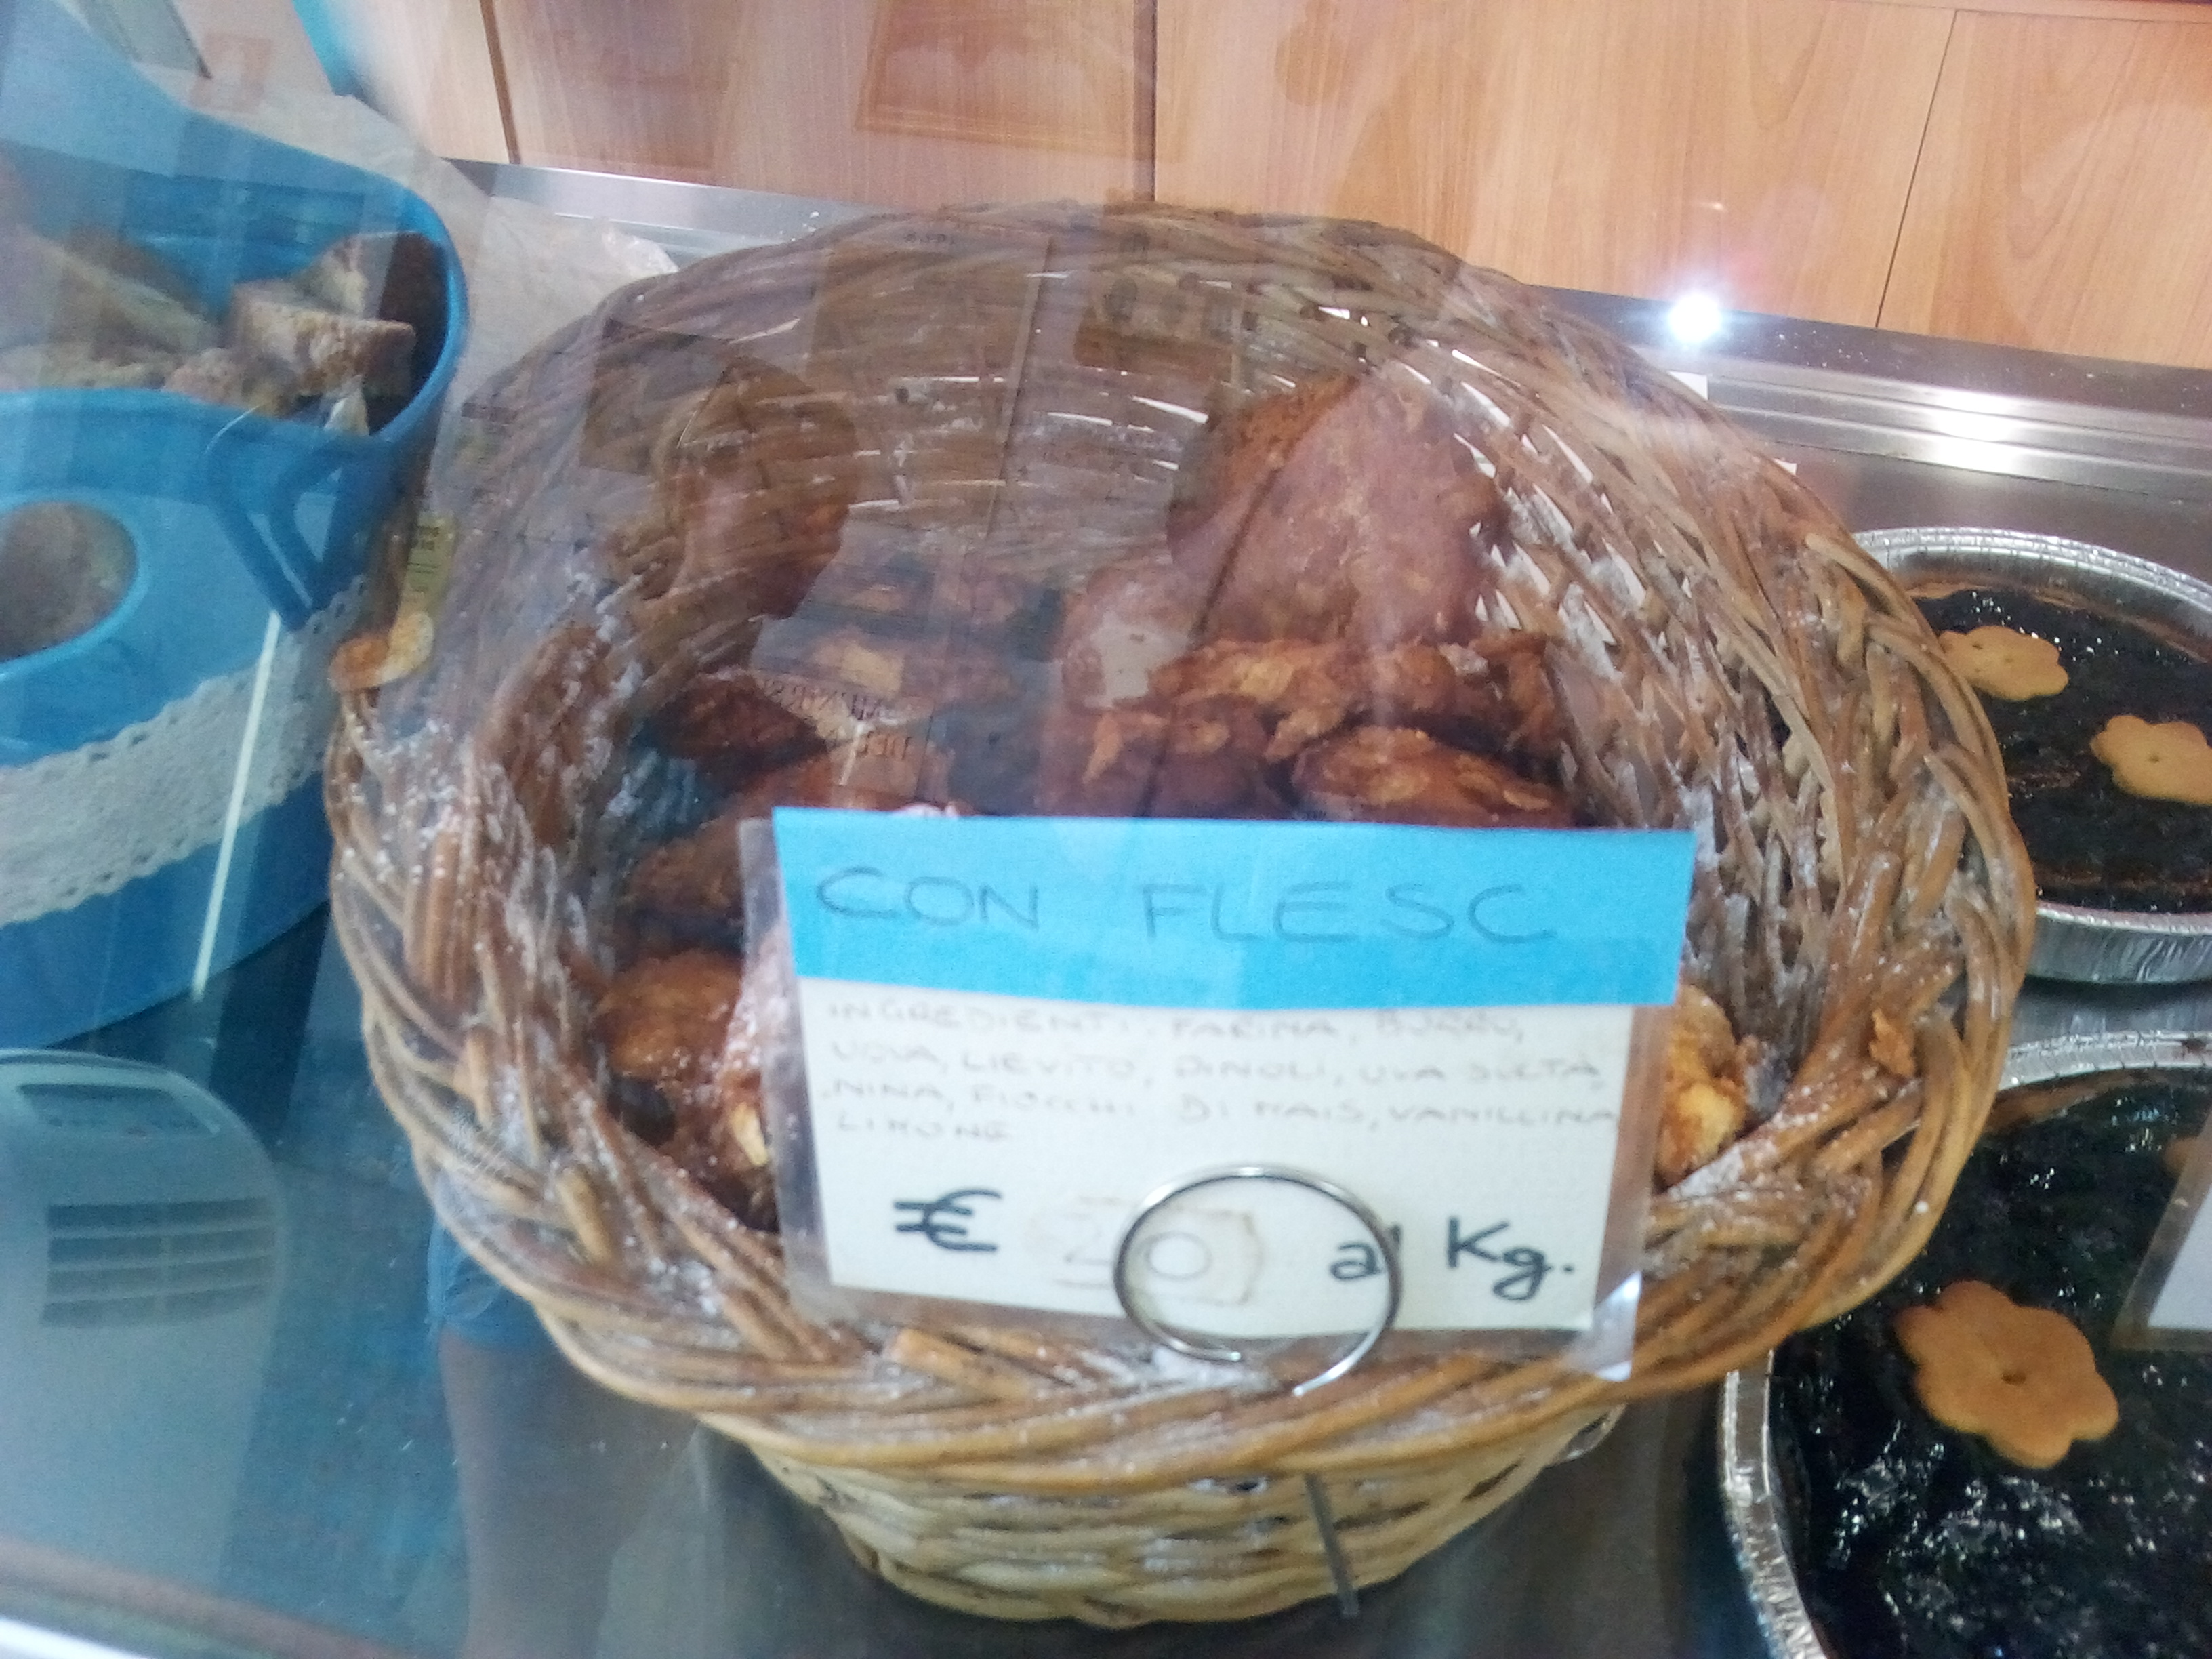 CON FLESC
INGREDIENTI: FARINA, BURRO,
UOVA, LIEVITO, PINOLI, UVA SULTA
NINA, FIOCCHI DI MAIS, VANILLINA
LIMONE
€ 20 al Kg.